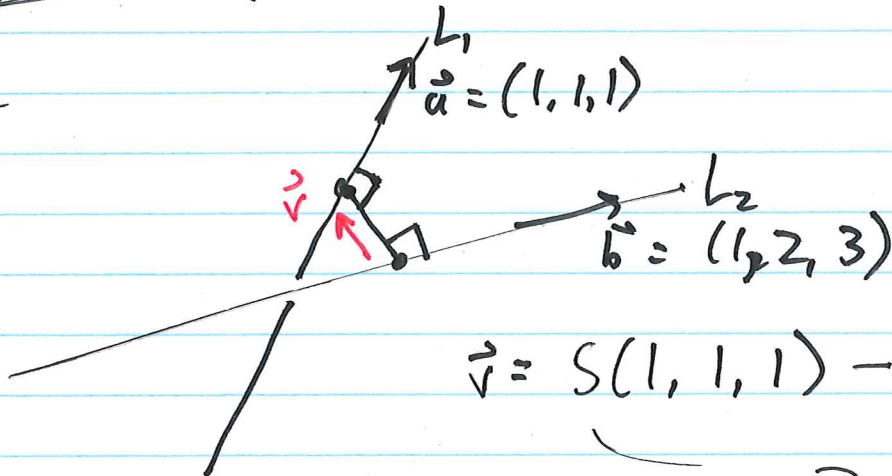 L₁
a⃗ = (1, 1, 1)
v⃗
L₂
b⃗ = (1, 2, 3)
v⃗ = S(1, 1, 1) −